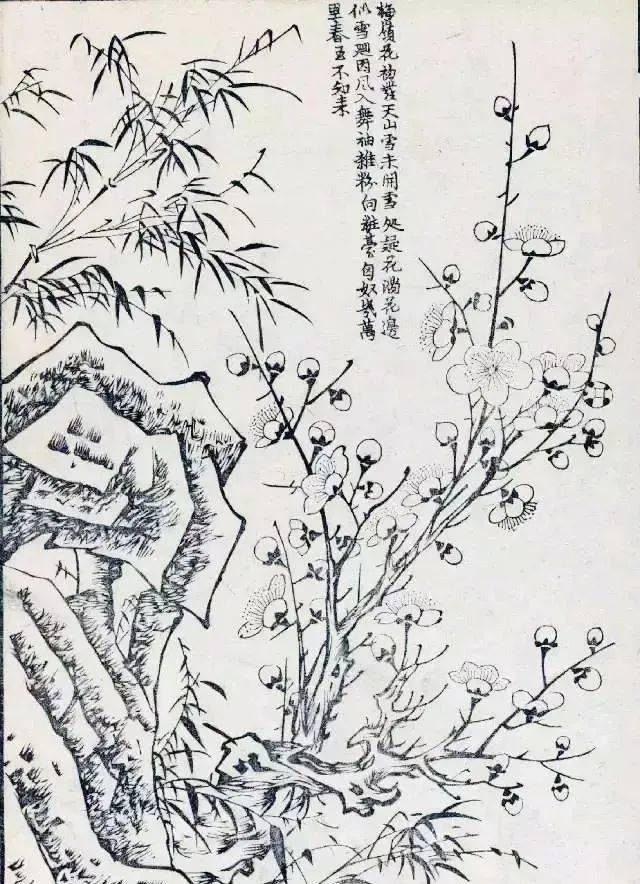 梅嶺花初發天山雪未開雪処疑花滿花邊
似雪迴因风入舞袖雜粉向粧臺匈奴幾萬
里春至不知来